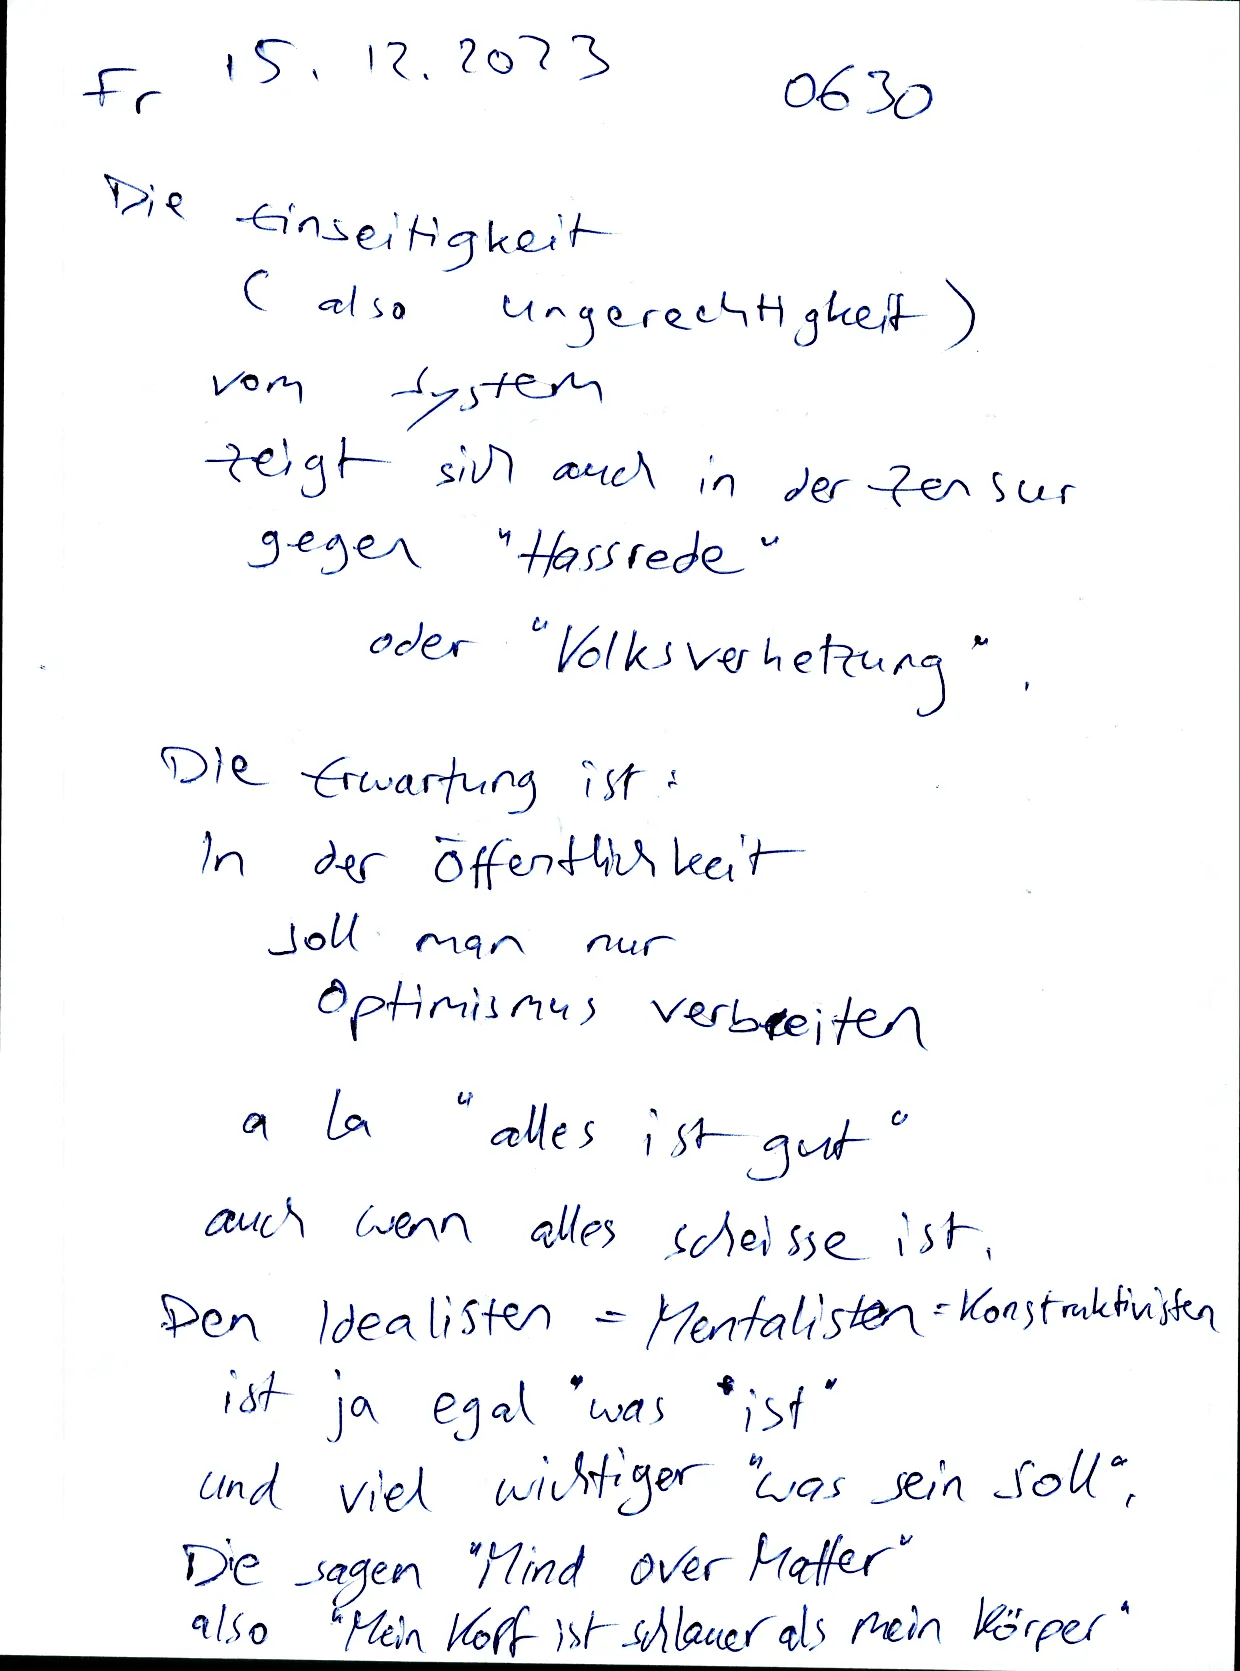 Fr 15.12.2023 0630
Die Einseitigkeit
( also ungerechtigkeit )
vom System
zeigt sich auch in der Zensur
gegen "Hassrede"
oder "Volksverhetzung".
Die Erwartung ist:
In der Öffentlichkeit
soll man nur
Optimismus verbreiten
a la "alles ist gut"
auch wenn alles scheisse ist.
Den Idealisten = Mentalisten = Konstruktivisten
ist ja egal "was "ist"
und viel wichtiger "was sein soll".
Die sagen "Mind over Matter"
also "Mein Kopf ist schlauer als mein Körper"